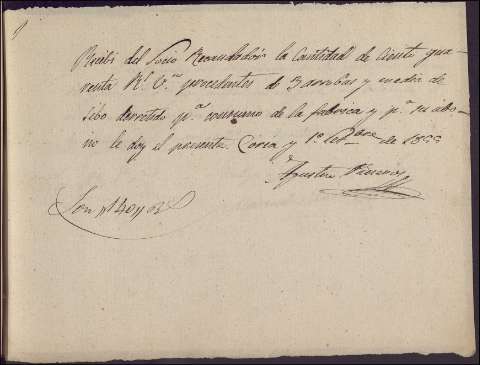 Recibi del Socio Recaudador la Cantidad de ciento qua-
renta Rs. Vn. procedentes de 3 arrobas y media de
sebo derretido pa. consumo de la fabrica y pa. su abo-
no le doy el presente. Coria y 1º. Setbre. de 18
Son 140 rs